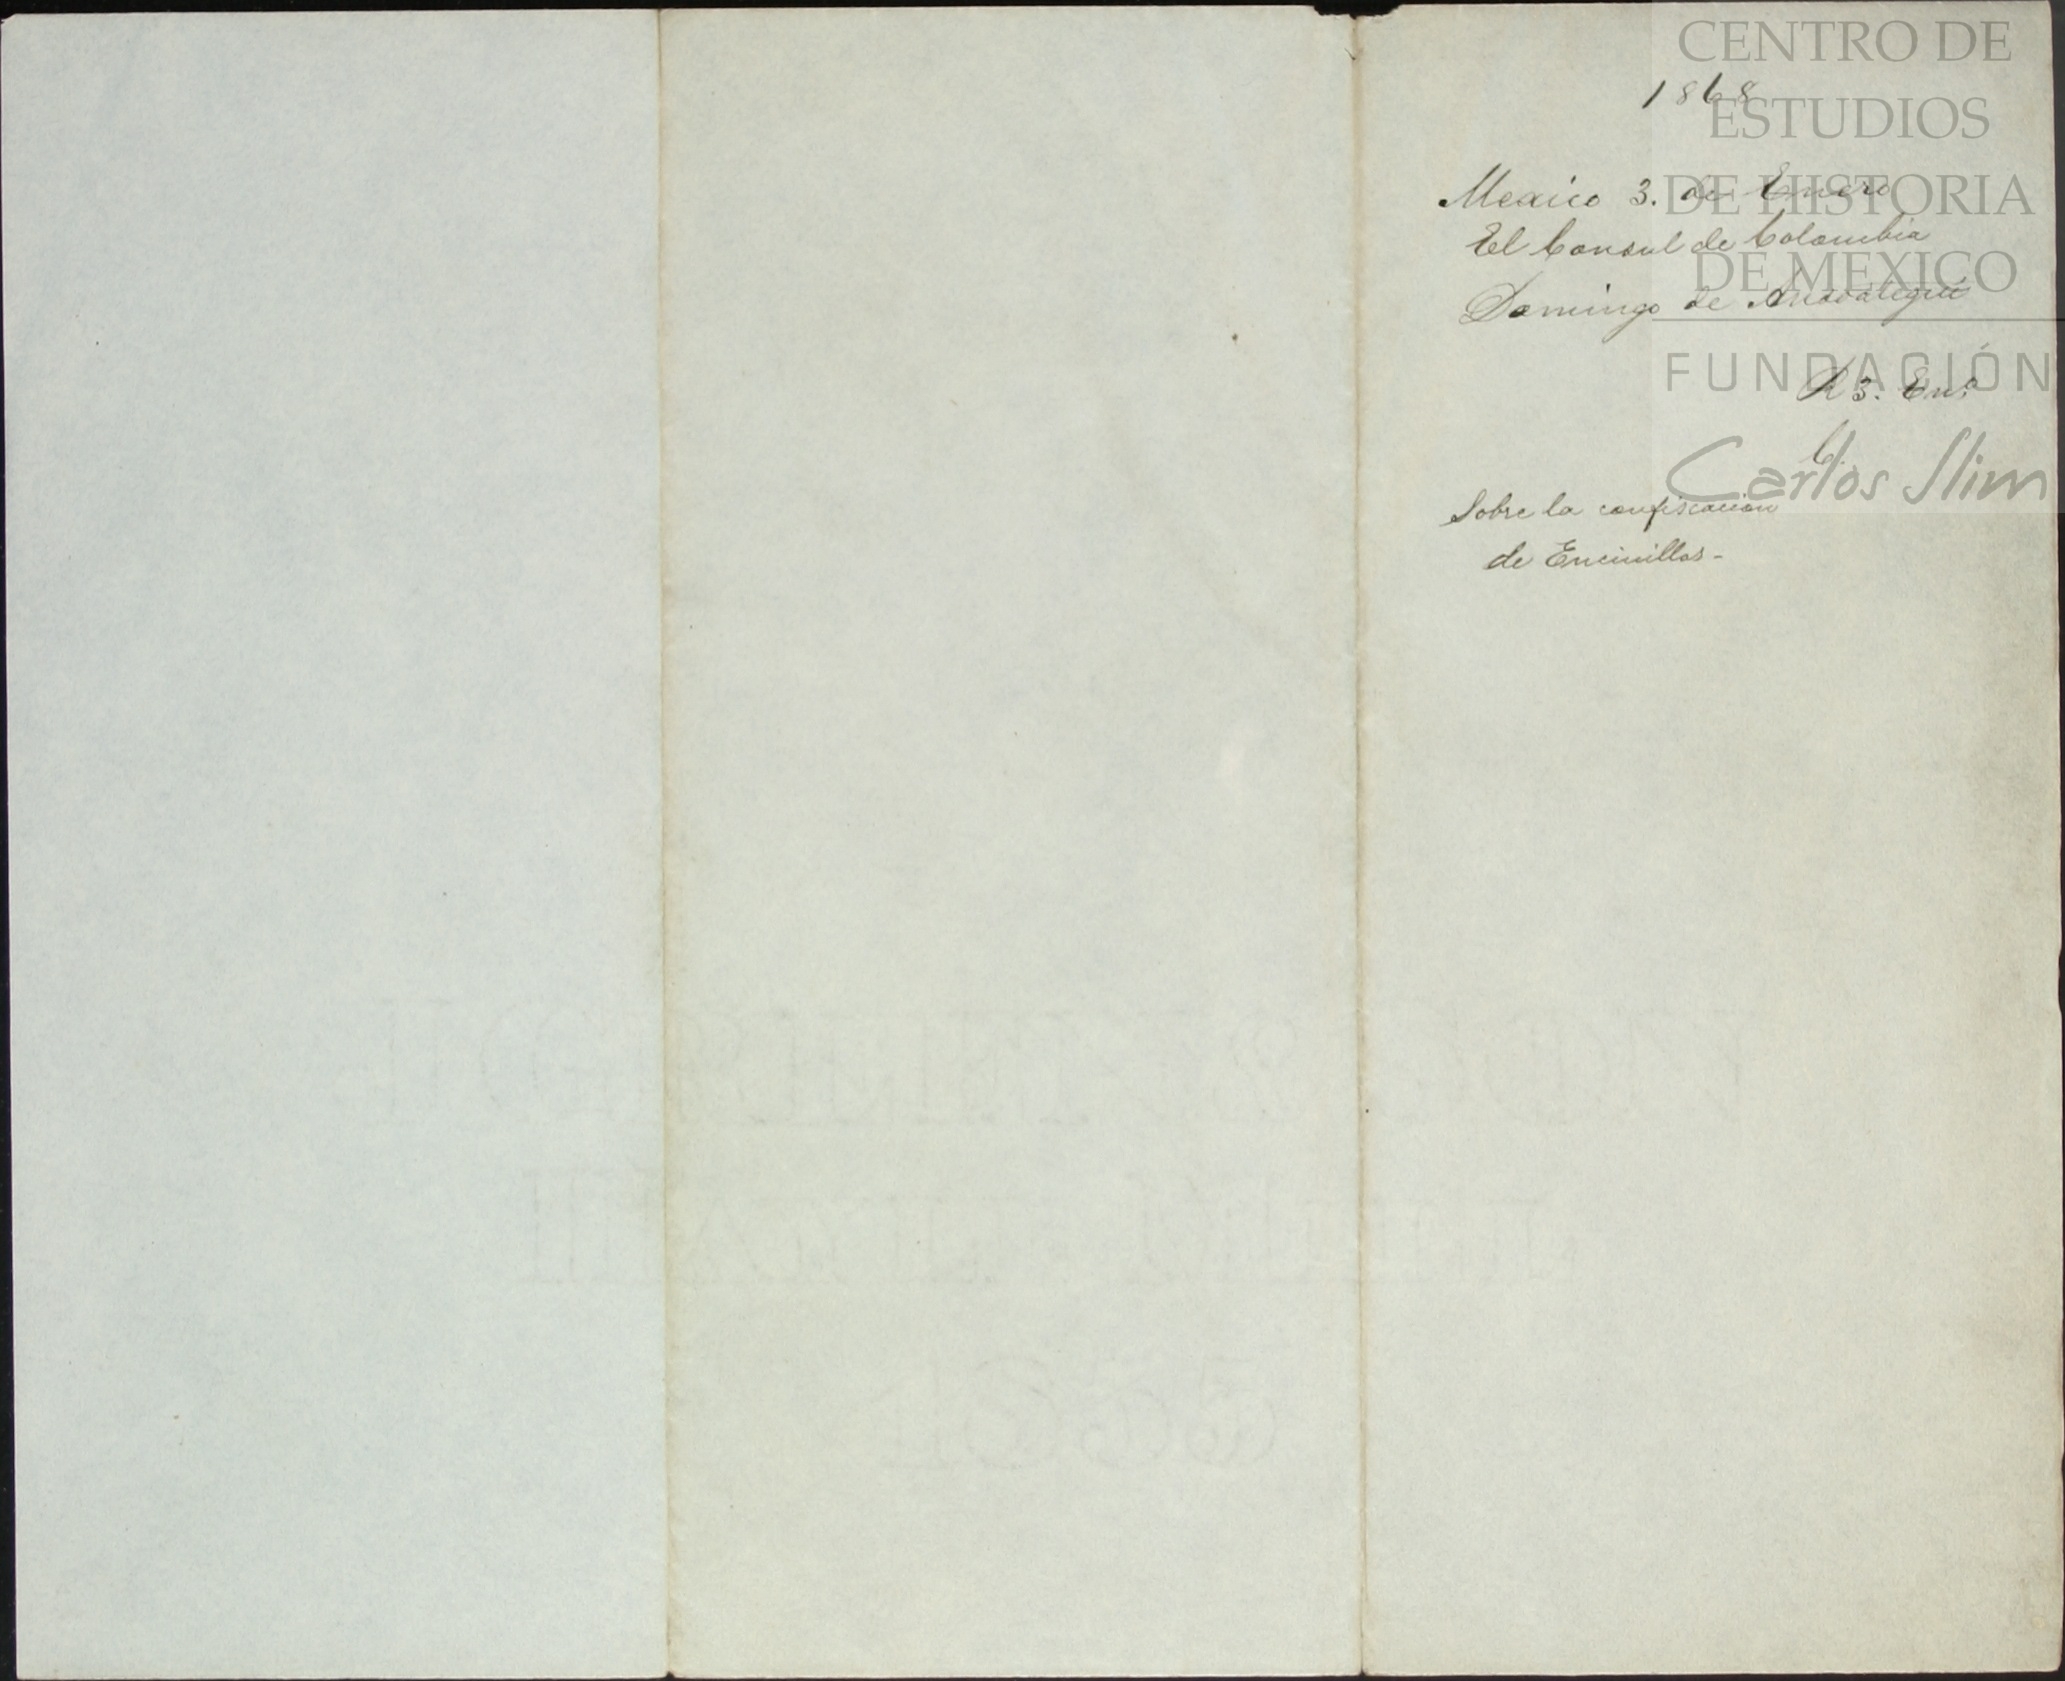 1868
Mexico 3. de Enero
El Consul de Colombia
Domingo de
R 3. En.º
C.
Sobre la confiscacion
de Encinillas-
CENTRO DE
ESTUDIOS
DE HISTORIA
DE MEXICO
FUNDACIÓN
Carlos Slim